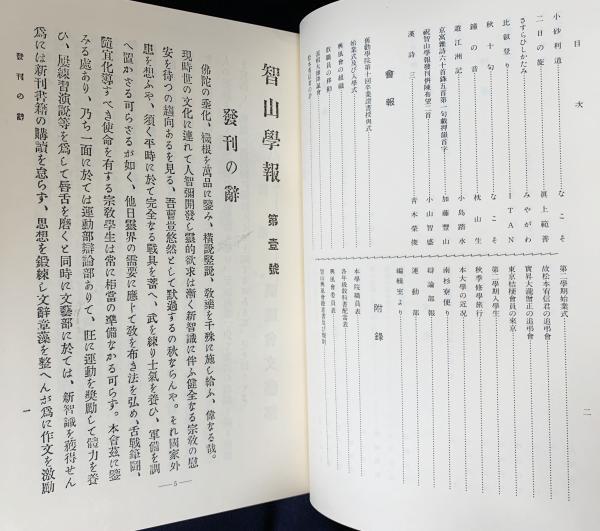 目次
小砂利道
なこそ
二日の旅
眞上範善
さすらひしかたみ
みやがわ
比叡登り
ITAN
秋十句
なこそ
鐘の音
枕山生
遊江洲記
小島踏水
京寓雜詩六十首錄五首第一句載押韻首字
加藤豐山
祝智山學報發刊併陳布望二首
小山智盛
漢詩三
青木榮俊
會報
舊勸學院第十回卒業證書授與式
始業式及び入學式
興風會の組織
敎職員の移動
第二學期始業式
故松本宥信君の追弔會
實昇大瀧智正の追弔會
東京桔梗會員の來京
第二學期入學生
秋季修學旅行
本大學の近況
南杉寮便り
辯論部報
運動部
編輯室より
附錄
本學院職員表
各年級敎科書配當表
興風會委員表
二
智山學報 第壹號
發刊の辭
佛陀の垂化、機根を萬品に鑒み、橫說竪說、敎藥を千殊に施し給ふ、偉なる哉。
現時世の文化に連れて人智彌開發し靈的欲求は漸く新智識に伴ふ健全なる宗敎の慰
安を待つの趨向あるを見る、吾曹豈悠然として默過するの秋ならんや。それ國家外
患を想ふや、須く平時に於て完全なる戰具を蓄へ、武を練り士氣を養ひ、軍備を調
へ置かさる可らさるが如く、他日靈界の需要に應じて敎を布き法を弘め、舌戰筆鬪、
隨宜化導すべき使命を有する宗敎學生は常に相當の準備なかる可らす。本會玆に
みる處あり、乃ち一面に於ては運動部辯論部ありて、旺に運動を奬勵して體力を養
ひ、屡練習演說等を爲して唇舌を磨くと同時に文藝部に於ては、新智識を獲得せん
爲には新刊書籍の購讀を怠らす、思想を鍛練し文辭章藻を整へんが爲に作文を激勵
發刊の辭
一
—5—